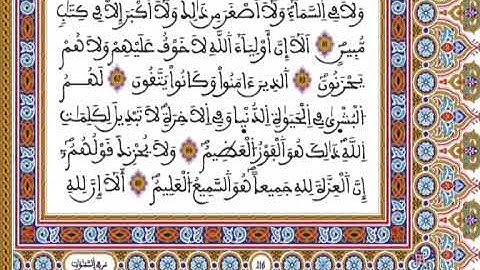 وَلَا فِي السَّمَاءِ وَلَا أَصْغَرَ مِن ذَٰلِكَ وَلَا أَكْبَرَ إِلَّا فِي كِتَٰبٍ
مُّبِينٍ ۝ أَلَا إِنَّ أَوْلِيَاءَ اَللَّهِ لَا خَوْفٌ عَلَيْهِمْ وَلَا هُمْ
يَحْزَنُونَ ۝ اَلذِينَ ءَامَنُواْ وَكَانُواْ يَتَّقُونَ ۝ لَهُمُ
اُلْبُشْرَىٰ فِي اِلْحَيَوٰةِ اِلدُّنْيَا وَفِي اِلَاخِرَةِ لَا تَبْدِيلَ لِكَلِمَٰتِ
اِللَّهِ ذَٰلِكَ هُوَ اَلْفَوْزُ اُلْعَظِيمُ ۝ وَلَا يُحْزِنكَ قَوْلُهُمُ
إِنَّ اَلْعِزَّةَ لِلهِ جَمِيعًا هُوَ اَلسَّمِيعُ اُلْعَلِيمُ ۝ أَلَا إِنَّ لِلهِ